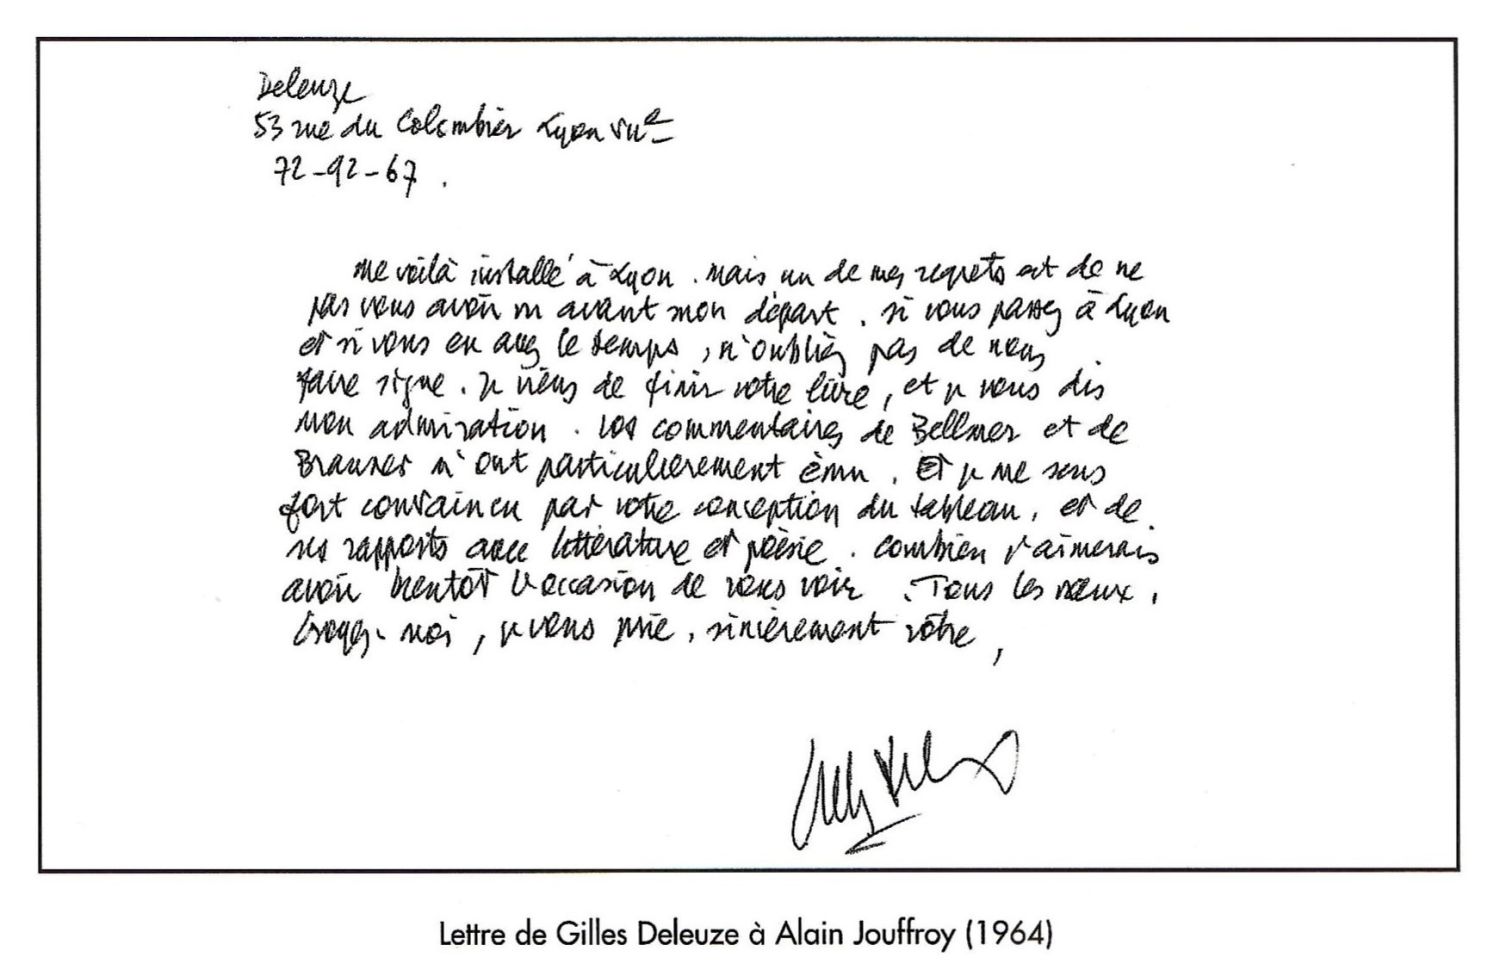 Deleuze
53 rue du Colombier Lyon VIIe
72-92-67.
me voilà installé à Lyon. mais un de mes regrets est de ne
pas vous avoir vu avant mon départ. si vous passez à Lyon
et si vous en avez le temps, n'oubliez pas de nous
faire signe. je viens de finir votre livre, et je vous dis
mon admiration. vos commentaires de Bellmer et de
Brauner m'ont particulièrement ému. Et je me sens
fort convaincu par votre conception du tableau, et de
ses rapports avec littérature et poésie. combien j'aimerais
avoir bientôt l'occasion de vous voir. Tous les vœux.
Croyez-moi, je vous prie, sincèrement vôtre,
Lettre de Gilles Deleuze à Alain Jouffroy (1964)